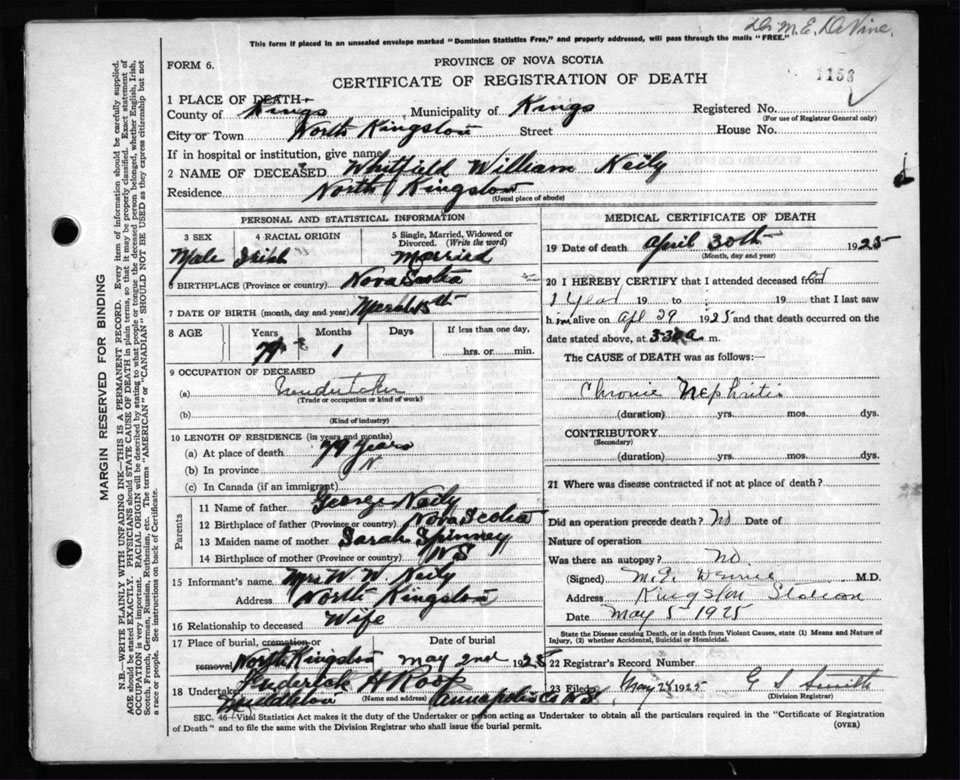 Dr M. E. DeVine.
This form if placed in an unsealed envelope marked "Dominion Statistics Free," and properly addressed, will pass through the mails "FREE."
FORM 6.
PROVINCE OF NOVA SCOTIA
CERTIFICATE OF REGISTRATION OF DEATH
1153
1 PLACE OF DEATH—
County of Kings Municipality of Kings Registered No.
(For use of Registrar General only)
City or Town North Kingston Street House No.
If in hospital or institution, give name
2 NAME OF DECEASED Whitfield William Neily
Residence North Kingston
(Usual place of abode)
PERSONAL AND STATISTICAL INFORMATION
3 SEX 4 RACIAL ORIGIN 5 Single, Married, Widowed or Divorced. (Write the word)
Male Irish Married
6 BIRTHPLACE (Province or country) Nova Scotia
7 DATE OF BIRTH (month, day and year) March 15th
8 AGE Years Months Days If less than one day,
79 1 hrs. or min.
9 OCCUPATION OF DECEASED
(a) Undertaker
(Trade or occupation or kind of work)
(b)
(Kind of industry)
10 LENGTH OF RESIDENCE (in years and months)
(a) At place of death 79 years
(b) In province "
(c) In Canada (if an immigrant)
Parents
11 Name of father George Neily
12 Birthplace of father (Province or country) Nova Scotia
13 Maiden name of mother Sarah Spinney
14 Birthplace of mother (Province or country) NS
15 Informant's name Mrs W W Neily
Address North Kingston
16 Relationship to deceased Wife
17 Place of burial, cremation or Date of burial
removal North Kingston May 2nd 1925
18 Undertaker Frederick H Roop
(Name and address)
Middleton Annapolis Co N.S.
MEDICAL CERTIFICATE OF DEATH
19 Date of death April 30th 1925
(Month, day and year)
20 I HEREBY CERTIFY that I attended deceased from
1 Year 19 to 19 that I last saw
him alive on Apl 29 1925 and that death occurred on
date stated above, at 3:30 a m.
The CAUSE of DEATH was as follows:
Chronic Nephritis
(duration) yrs. mos. dys.
CONTRIBUTORY
(Secondary)
(duration) yrs. mos. dys.
21 Where was disease contracted if not at place of death?
Did an operation precede death? No Date of
Nature of operation
Was there an autopsy? no
(Signed) M.E. M.D.
Address Kingston Station
Date May 5 1925
State the Disease causing Death, or in death from Violent Causes, state (1) Means and Nature of
Injury, (2) whether Accidental, Suicidal or Homicidal.
22 Registrar's Record Number
23 Filed May 28 1925 G S Smith
(Division Registrar)
SEC. 46—Vital Statistics Act makes it the duty of the Undertaker or person acting as Undertaker to obtain all the particulars required in the "Certificate of Registration
of Death" and to file the same with the Division Registrar who shall issue the burial permit. (OVER)
MARGIN RESERVED FOR BINDING
N.B.—WRITE PLAINLY WITH UNFADING INK—THIS IS A PERMANENT RECORD. Every item of information should be carefully supplied.
AGE should be stated EXACTLY. PHYSICIANS should STATE CAUSE OF DEATH in plain terms, so that it may be properly classified. Exact statement of
OCCUPATION is very important. RACIAL ORIGIN will be described by stating to what people or tongue the deceased person belonged, whether English, Irish,
Scotch, French, German, Russian, Ruthenian, etc. The terms "AMERICAN" or "CANADIAN" SHOULD NOT BE USED as they express citizenship but not
a race or people. See instructions on back of Certificate.